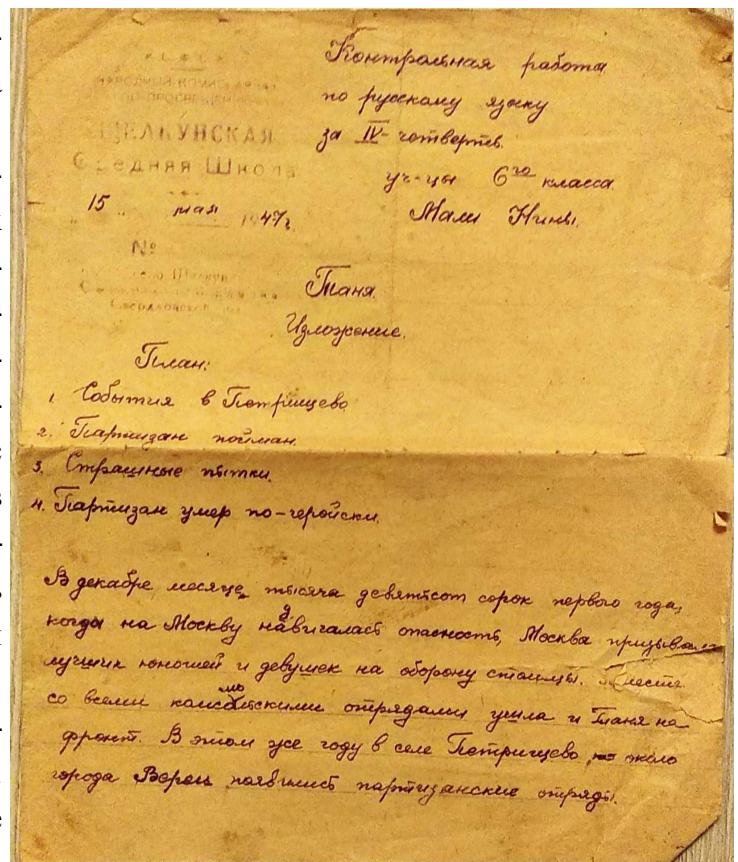 НАРОДНЫЙ КОМИССАРИАТ
ПРОСВЕЩЕНИЯ
ЩЕЛКУНСКАЯ
Средняя Школа
15 мая 1947г
№
Контрольная работа
по русскому языку
за IV-четверть.
уч-цы 6го класса
Мали Нины.
Таня.
Изложение.
План:
1. События в Петрищево
2. Партизан пойман.
3. Страшные пытки.
4. Партизан умер по-геройски.
В декабре месяце тысяча девятьсот сорок первого года,
когда на Москву надвигалась опасность, Москва призывала
лучших юношей и девушек на оборону столицы. Вместе
со всеми комсомольскими отрядами ушла и Таня на
фронт. В этом же году в селе Петрищево, около
города Вереи появились партизанские отряды.